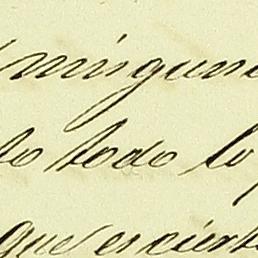 ninguna
to todo lo
que es cierto